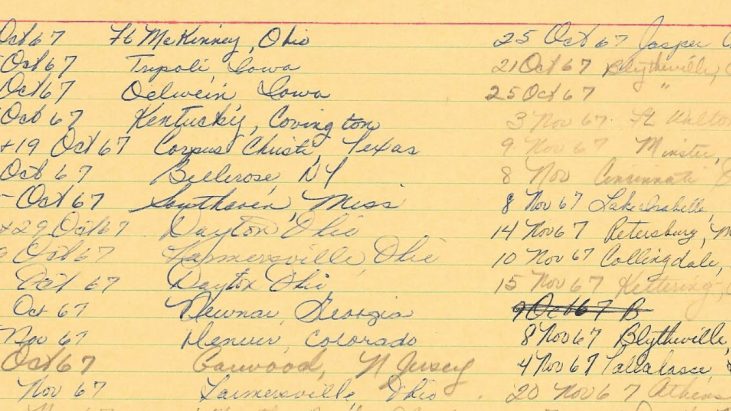 Oct 67 Ft McKinney, Ohio 25 Oct 67 Jasper
Oct 67 Tripoli Iowa 21 Oct 67 Blytheville,
Oct 67 Oelwein, Iowa 25 Oct 67 "
Oct 67 Kentucky, Covington 3 Nov 67 Ft Walton
+19 Oct 67 Corpus Christi, Texas 9 Nov 67 Munster,
Oct 67 Bellerose, NY 8 Nov Cincinnati
Oct 67 Southaven, Miss 8 Nov 67 Lake Isabelle,
+29 Oct 67 Dayton Ohio 14 Nov 67 Petersburg,
Oct 67 Farmersville, Ohio 10 Nov 67 Collingdale,
Oct 67 Dayton Ohio, 15 Nov 67 Kettering,
Oct 67 Newnan, Georgia 9 Oct 67 B
Nov 67 Denver, Colorado 8 Nov 67 Blytheville,
Oct 67 Garwood, N Jersey 4 Nov 67
Nov 67 Farmersville, Ohio 20 Nov 67 Athens